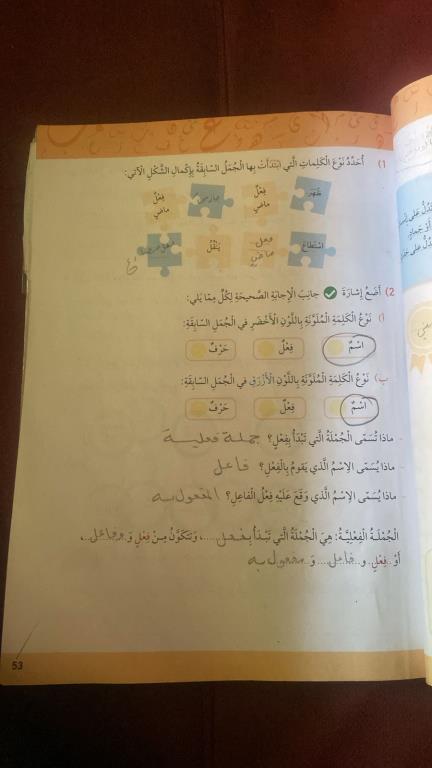 1) أُحَدِّدُ نَوْعَ الْكَلِماتِ الَّتي ابْتَدَأَتْ بِها الْجُمَلُ السّابِقَةُ بِإِكْمالِ الشَّكْلِ الْآتي:
ظَهَرَ فِعْلٌ ماضي مارس فِعْلٌ ماضي
اسْتَطاعَ فعل ماضي يَنْقُلُ فعل مضارع
2) أَضَعُ إِشارَةَ جانِبَ الْإِجابَةِ الصَّحيحَةِ لِكُلٍّ مِمّا يَلي:
أ) نَوْعُ الْكَلِمَةِ الْمُلَوَّنَةِ بِاللَّوْنِ الْأَخْضَرِ في الْجُمَلِ السّابِقَةِ:
اسْمٌ فِعْلٌ حَرْفٌ
ب) نَوْعُ الْكَلِمَةِ الْمُلَوَّنَةِ بِاللَّوْنِ الْأَزْرَقِ في الْجُمَلِ السّابِقَةِ:
اسْمٌ فِعْلٌ حَرْفٌ
- ماذا تُسَمّى الْجُمْلَةُ الَّتي تَبْدَأُ بِفِعْلٍ؟ جملة فعلية
- ماذا يُسَمّى الِاسْمُ الَّذي يَقومُ بِالْفِعْلِ؟ فاعل
- ماذا يُسَمّى الِاسْمُ الَّذي وَقَعَ عَلَيْهِ فِعْلُ الْفاعِلِ؟ المفعول به
الْجُمْلَةُ الْفِعْلِيَّةُ: هِيَ الْجُمْلَةُ الَّتي تَبْدَأُ بِفعل.....، وَتَتَكَوَّنُ مِنْ فِعْلٍ وَ وفاعل..،
أَوْ ..فِعْلٍ.. و..فاعل.... وَ مفعول به
53